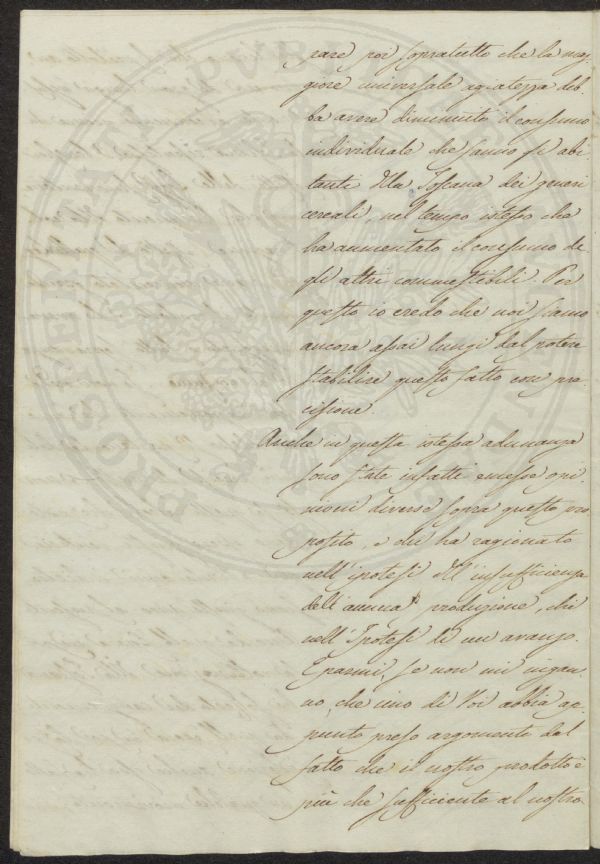 rare poi sopratutto che la mag
giore universale agiatezza deb
ba avere diminuito il consumo
individuale che fanno gli abi
tanti della Toscana dei generi
cereali, nel tempo istesso che
ha aumentato il consumo de
gli altri commestibili. Per
questo io credo che noi siamo
ancora assai lungi dal potere
stabilire questo fatto con pre
cisione
Anche in questa istessa adunanza
sono state infatti emesse opi
nioni diverse sopra questo pro
posito, e chi ha ragionato
nell'ipotesi dell'insufficienza
dell'annua produzione, chi
nell'Ipotesi di un avanzo.
E parmi, se non mi ingan
no, che uno di Voi abbia ap
punto preso argomento dal
fatto che il nostro prodotto è
più che sufficiente al nostro